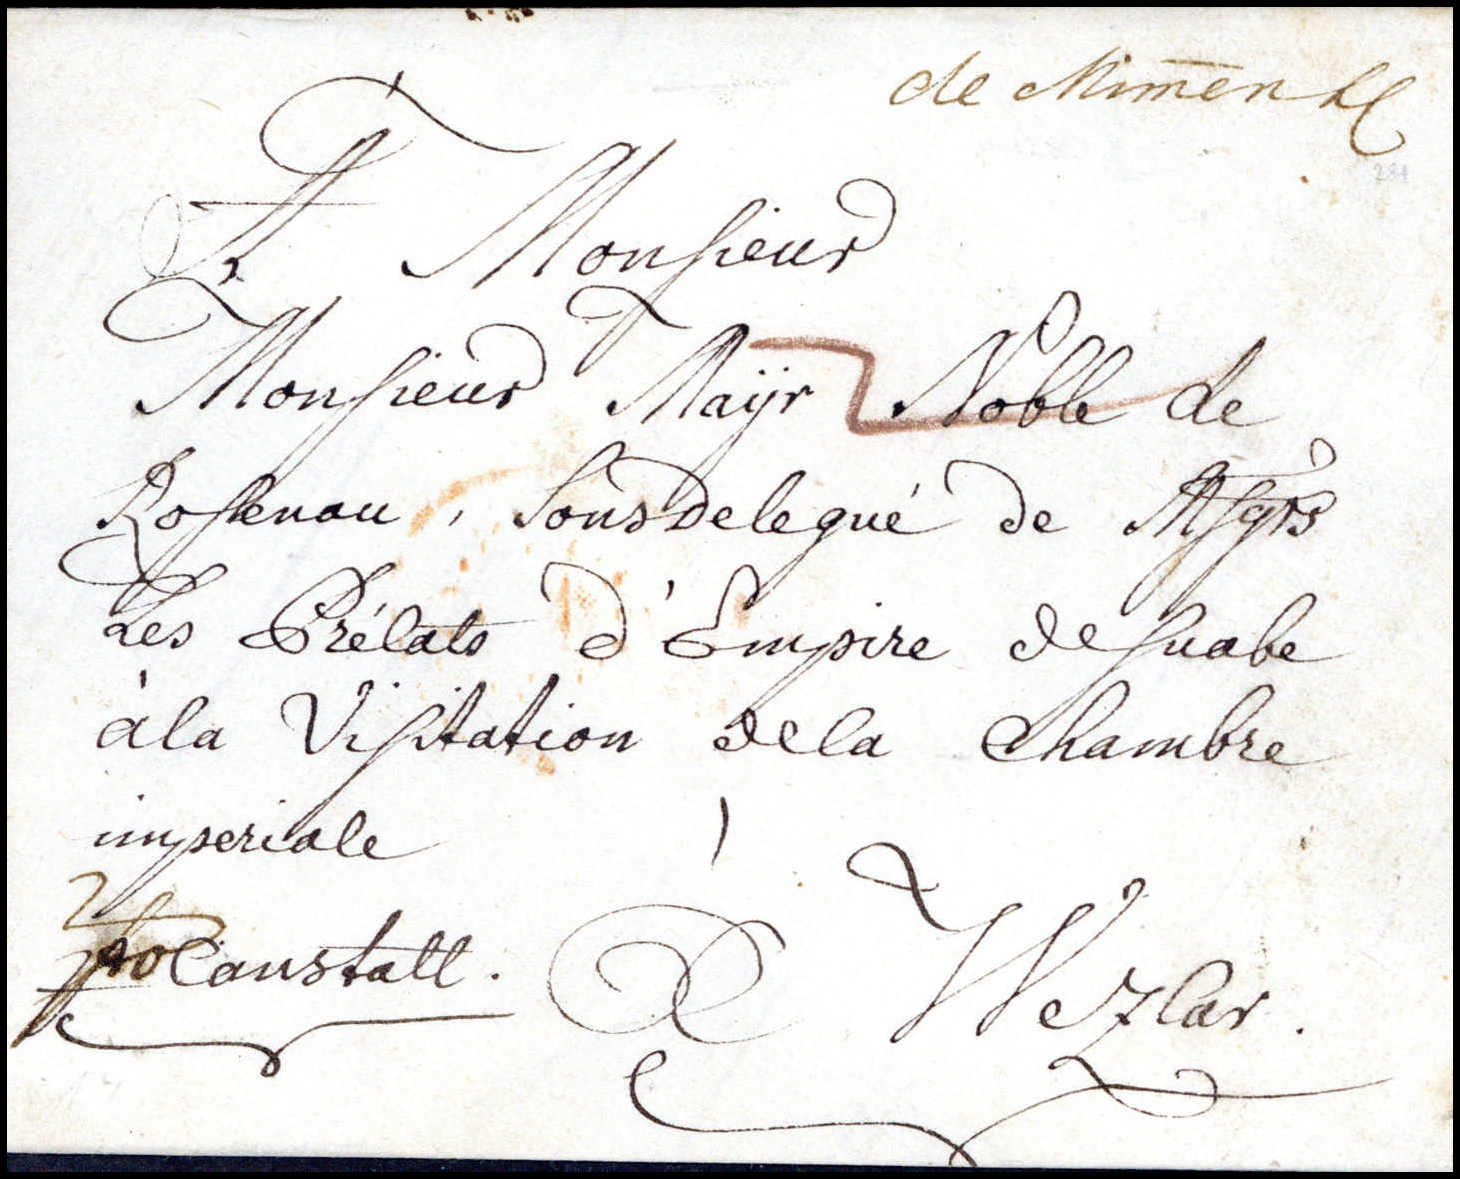 de Mimēn
A Monsieur
Monsieur Maÿr Noble de
Rossenau, Sous Delegué de Msgrs
Les Prélats d'Empire de Suabe
à la Visitation de la Chambre
imperiale
Canstatt.
à Wezlar.